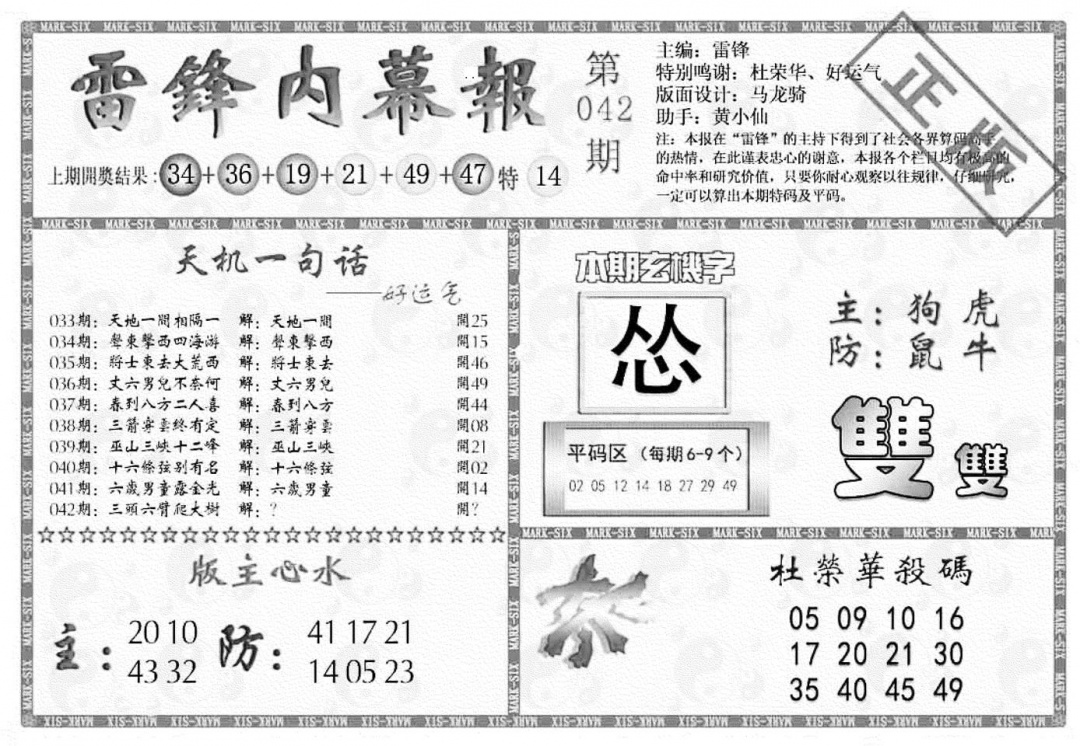 雷鋒内幕報
第
042
期
主编：雷锋
特别鸣谢：杜荣华、好运气
版面设计：马龙骑
助手：黄小仙
注：本报在“雷锋”的主持下得到了社会各界算码高手
的热情，在此谨表忠心的谢意，本报各个栏目均有极高的
命中率和研究价值，只要你耐心观察以往规律，仔细研究，
一定可以算出本期特码及平码。
正版
上期開獎结果：34+36+19+21+49+47特14
天机一句话
——好运气
033期：天地一間相隔一 解：天地一間 開25
034期：聲東擊西四海游 解：聲東擊西 開15
035期：將士東去大荒西 解：將士東去 開46
036期：丈六男兒不奈何 解：丈六男兒 開49
037期：春到八方二人喜 解：春到八方 開44
038期：三箭穿雲終有定 解：三箭穿雲 開08
039期：巫山三峽十二峰 解：巫山三峽 開21
040期：十六條弦别有名 解：十六條弦 開02
041期：六歲男童露金光 解：六歲男童 開14
042期：三頭六臂爬大樹 解：？ 開？
本期玄機字
怂
主：狗虎
防：鼠牛
平码区（每期6-9个）
02 05 12 14 18 27 29 49
雙雙
版主心水
主：
20 10
43 32
防：
41 17 21
14 05 23
杀
杜榮華殺碼
05 09 10 16
17 20 21 30
35 40 45 49
MARK-SIX